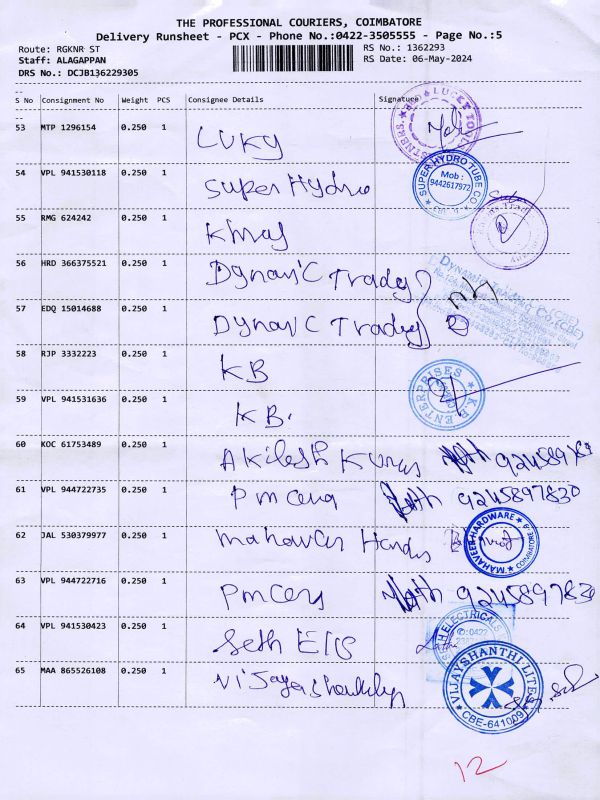 THE PROFESSIONAL COURIERS, COIMBATORE
Delivery Runsheet - PCX - Phone No.:0422-3505555 - Page No.:5
Route: RGKNR ST
RS No.: 1362293
Staff: ALAGAPPAN
RS Date: 06-May-2024
DRS No.: DCJB136229305
S No Consignment No Weight PCS Consignee Details Signature
53 MTP 1296154 0.250 1 LUKY
54 VPL 941530118 0.250 1 Super Hydro
SUPER HYDRO TUBE CO
Mob :
9442617972
55 RMG 624242 0.250 1
56 HRD 366375521 0.250 1
DYNAMIC TRADING CO.(CBE)
57 EDQ 15014688 0.250 1
58 RJP 3332223 0.250 1 KB
K.B. ENTERPRISES
59 VPL 941531636 0.250 1 KB.
60 KOC 61753489 0.250 1 Akilesh
61 VPL 944722735 0.250 1 9245897830
62 JAL 530379977 0.250 1
MAHAVEER HARDWARE
COIMBATORE
63 VPL 944722716 0.250 1 9245897830
64 VPL 941530423 0.250 1 Seth
ELECTRICALS
65 MAA 865526108 0.250 1
VIJAYSHANTHI LITES
CBE-641009
12